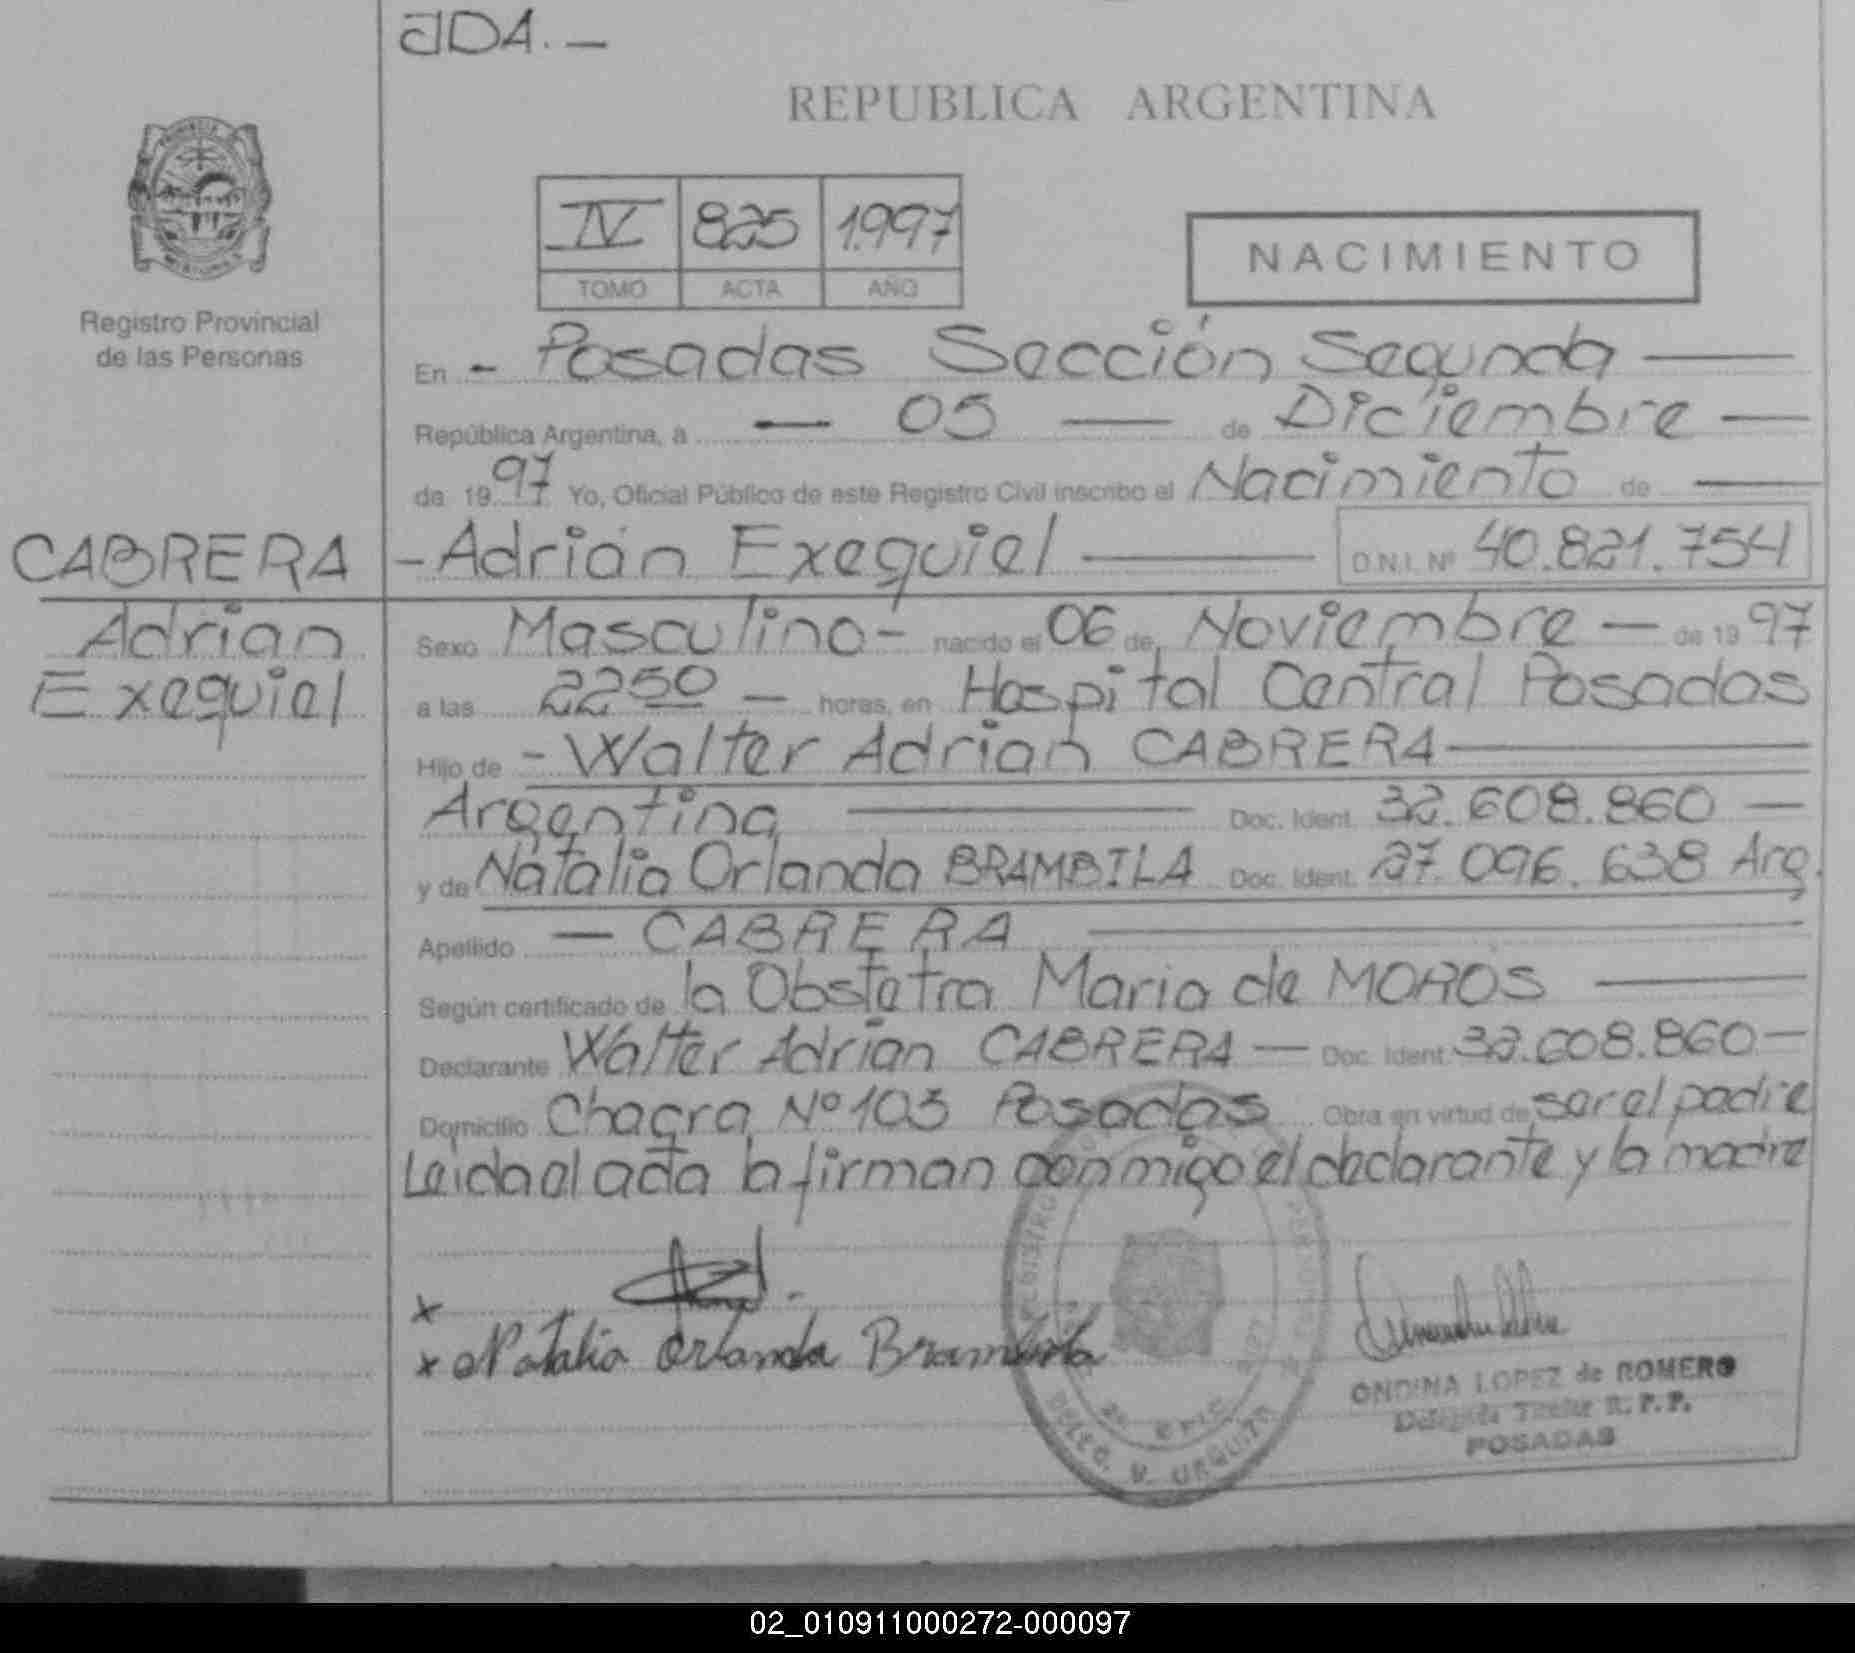 JDA. —
REPUBLICA ARGENTINA
IV 825 1.997
TOMO ACTA AÑO
NACIMIENTO
Registro Provincial
de las Personas
En - Posadas Sección Segunda —
República Argentina, a — 05 — de Diciembre —
de 1997 Yo, Oficial Público de este Registro Civil inscribo el Nacimiento de —
CABRERA
- Adrián Exequiel — D.N.I. Nº 40.821.754
Adrian
Exequiel
Sexo Masculino - nacido el 06 de Noviembre — de 1997
a las 22 50 — horas, en Hospital Central Posadas
Hijo de - Walter Adrian CABRERA —
Argentina — Doc. Ident. 32.608.860 —
y de Natalia Orlanda BRAMBILA Doc. Ident. 27.096.638 Arg.
Apellido — CABRERA —
Según certificado de la Obstetra Maria de MOROS —
Declarante Walter Adrian CABRERA — Doc. Ident. 32.608.860 —
Domicilio Chacra Nº 103 Posadas Obra en virtud de ser el padre
Leida el acta la firman conmigo el declarante y la madre
x
x Natalia Orlanda Brambila
ONDINA LOPEZ de ROMERO
Delegada Titular R. P. P.
POSADAS
02_010911000272-000097